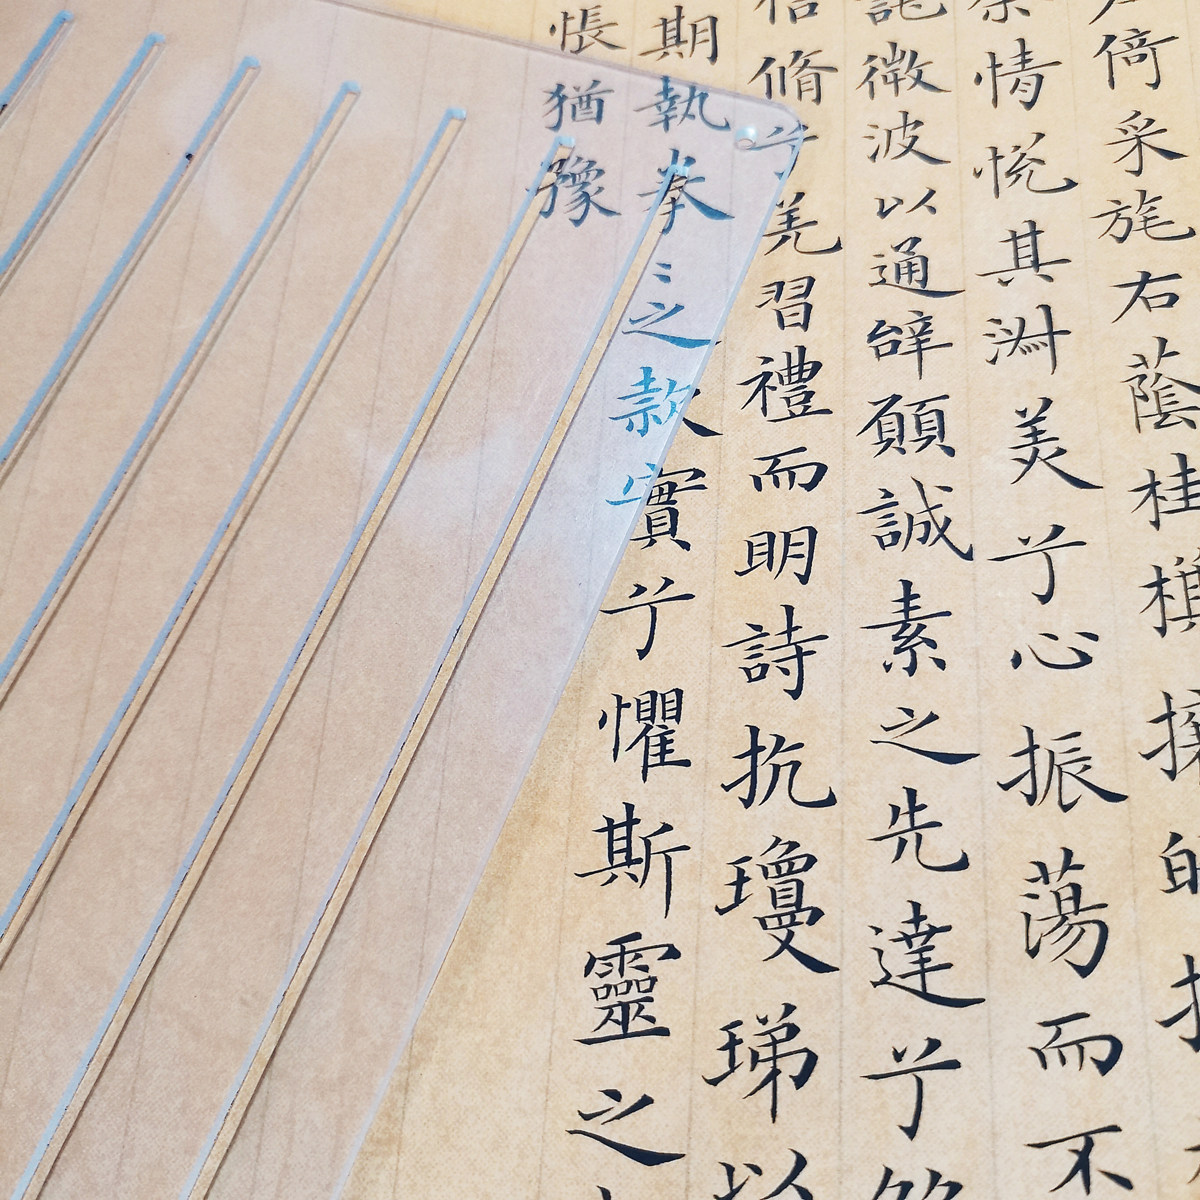 倚采旄右蔭桂
余情悅其淑美兮心振蕩而不
託微波以通辝願誠素之先達兮
信脩兮羌習禮而明詩抗瓊珶以
期執拳〻之款實兮懼斯靈之
悵猶豫